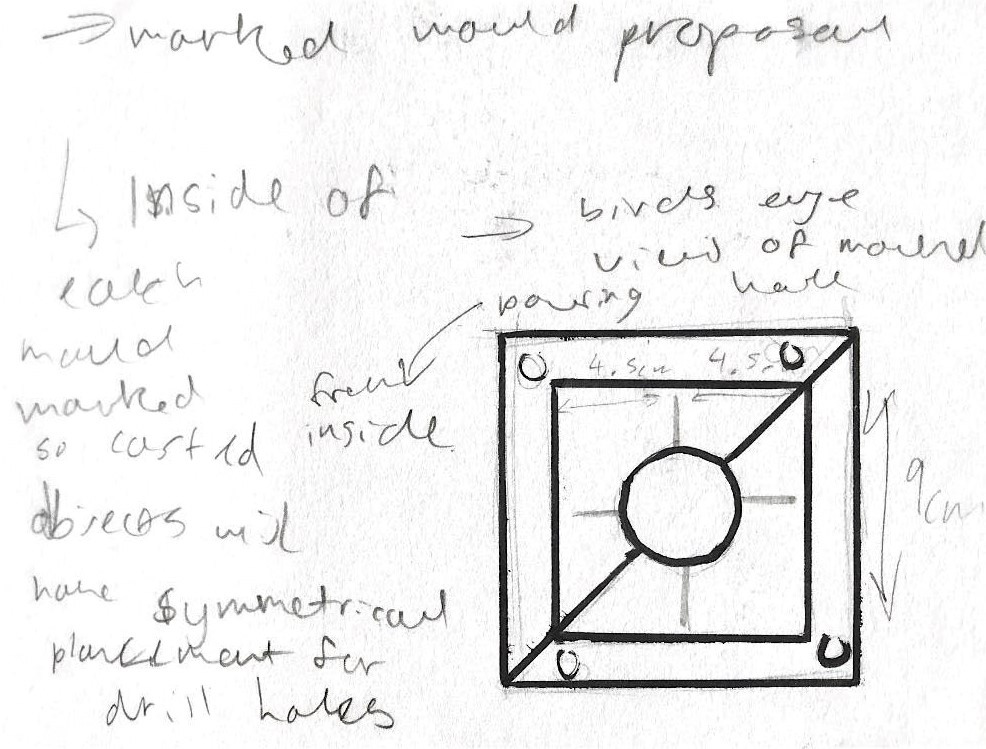 → marked mould proposal
↳ Inside of
each
mould
marked
so casted
objects will
have symmetrical
placement for
drill holes
→ birds eye
view of mould
pouring hole
from
inside
4.5cm 4.5cm
9cm